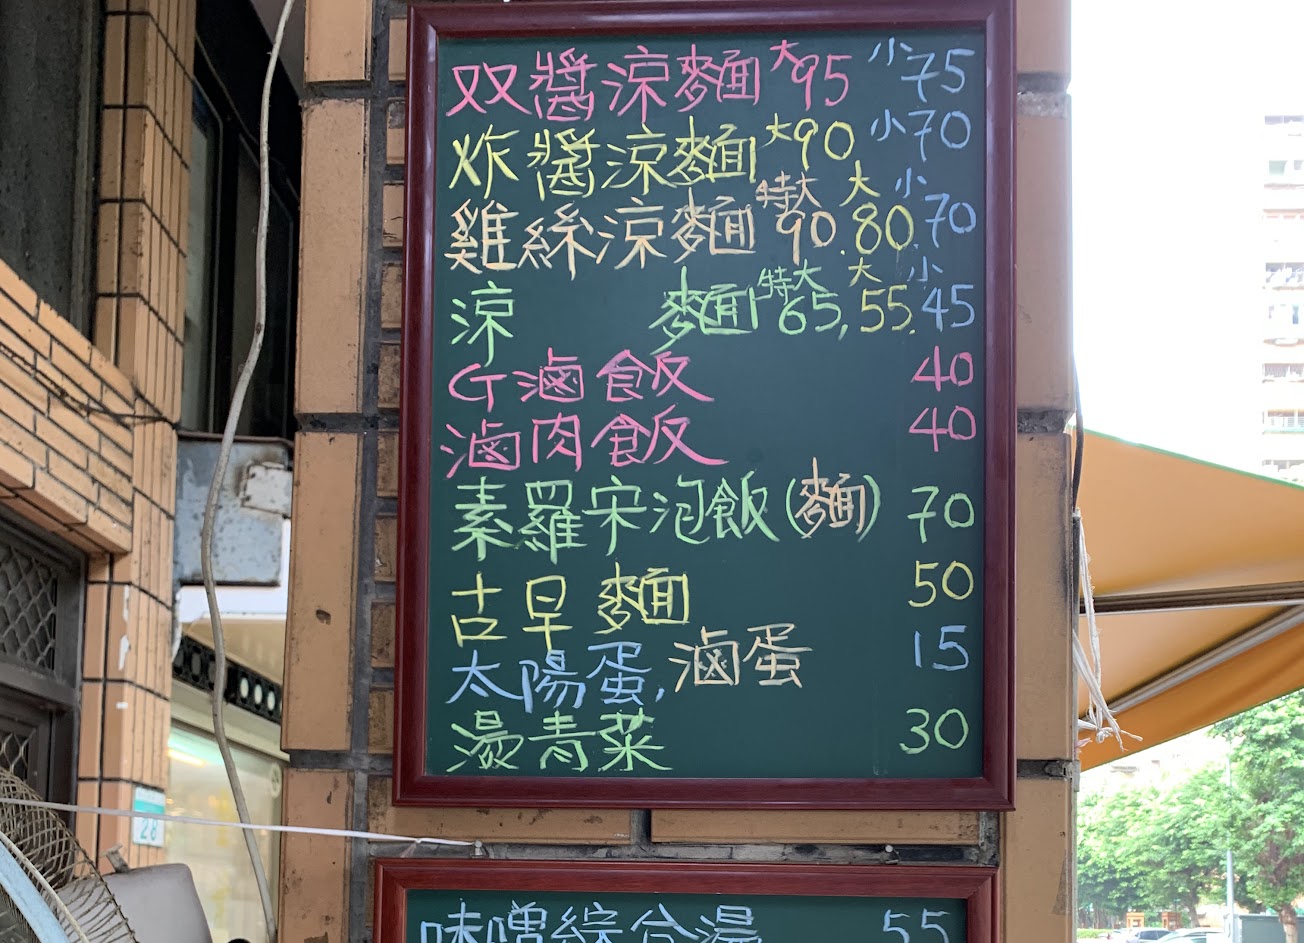 双醬涼麵大95 小75
炸醬涼麵大90 小70
雞絲涼麵特大90.大80.小70
涼 麵特大65,大55.小45
G滷飯 40
滷肉飯 40
素羅宋泡飯(麵) 70
古早麵 50
太陽蛋,滷蛋 15
湯青菜 30
味噌綜合湯 55
28